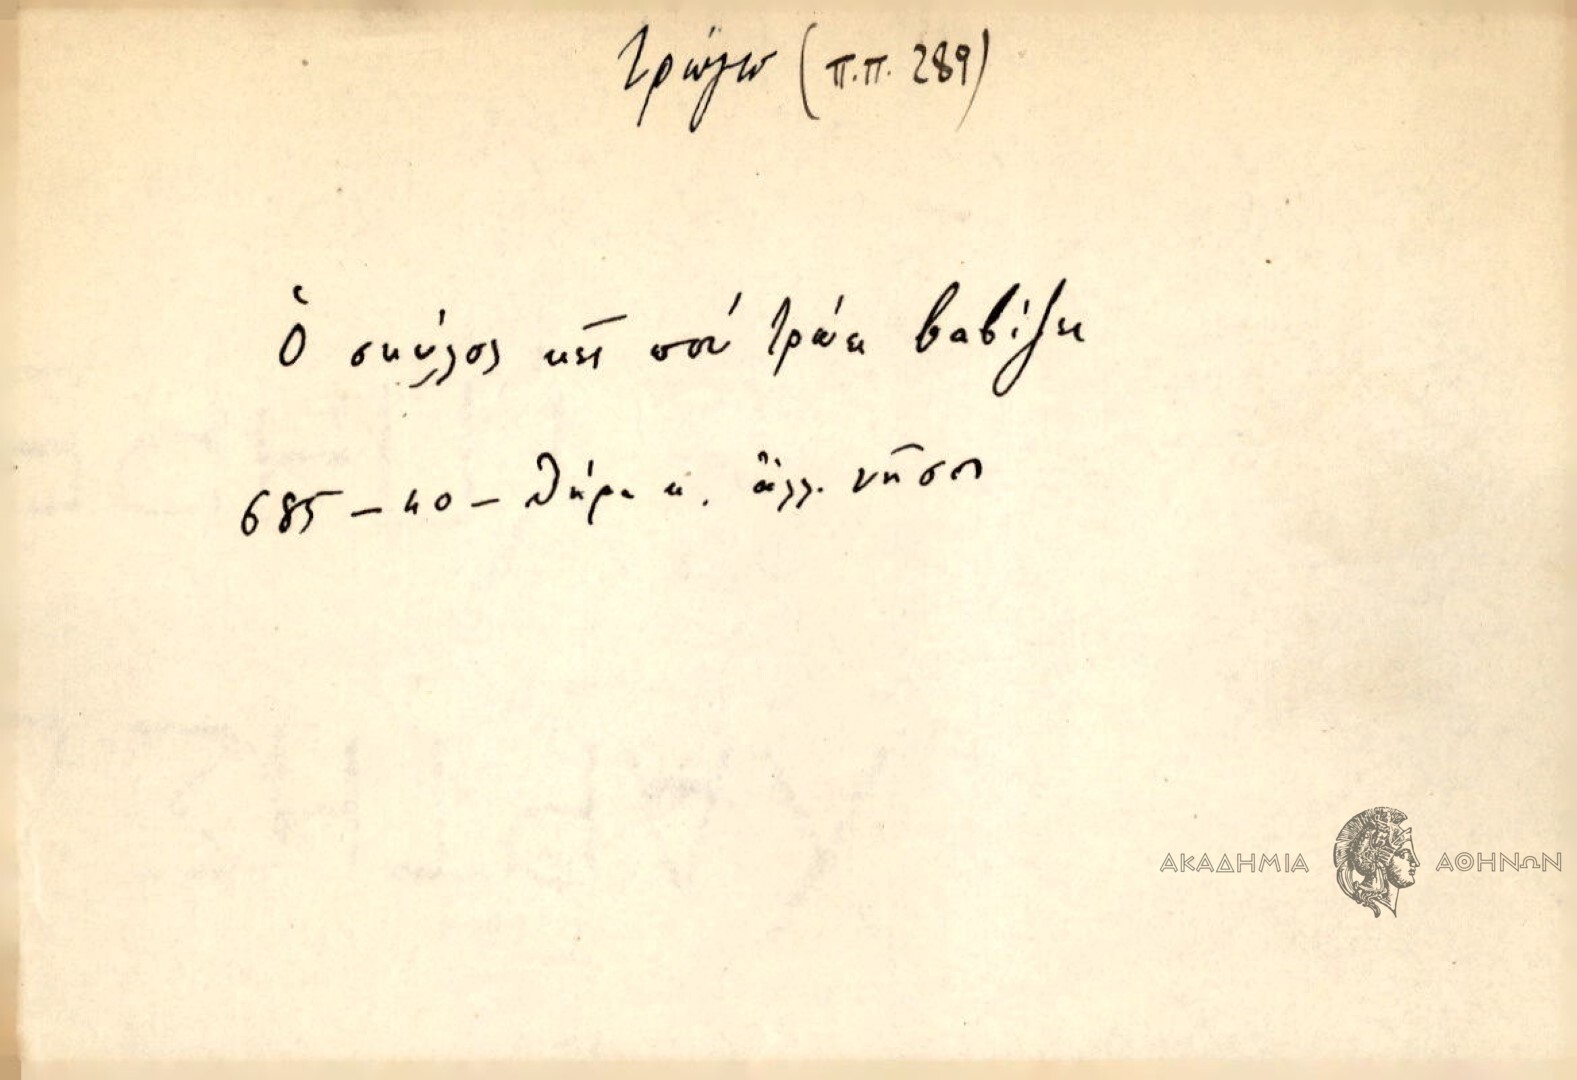 τρώγω (π.π. 289)
Ὁ σκύλος κεῖ ποὺ τρώει βαβίζει
685 – 40 – Θήρα κ. ἄλλ. νῆσοι
ΑΚΑΔΗΜΙΑ ΑΘΗΝΩΝ